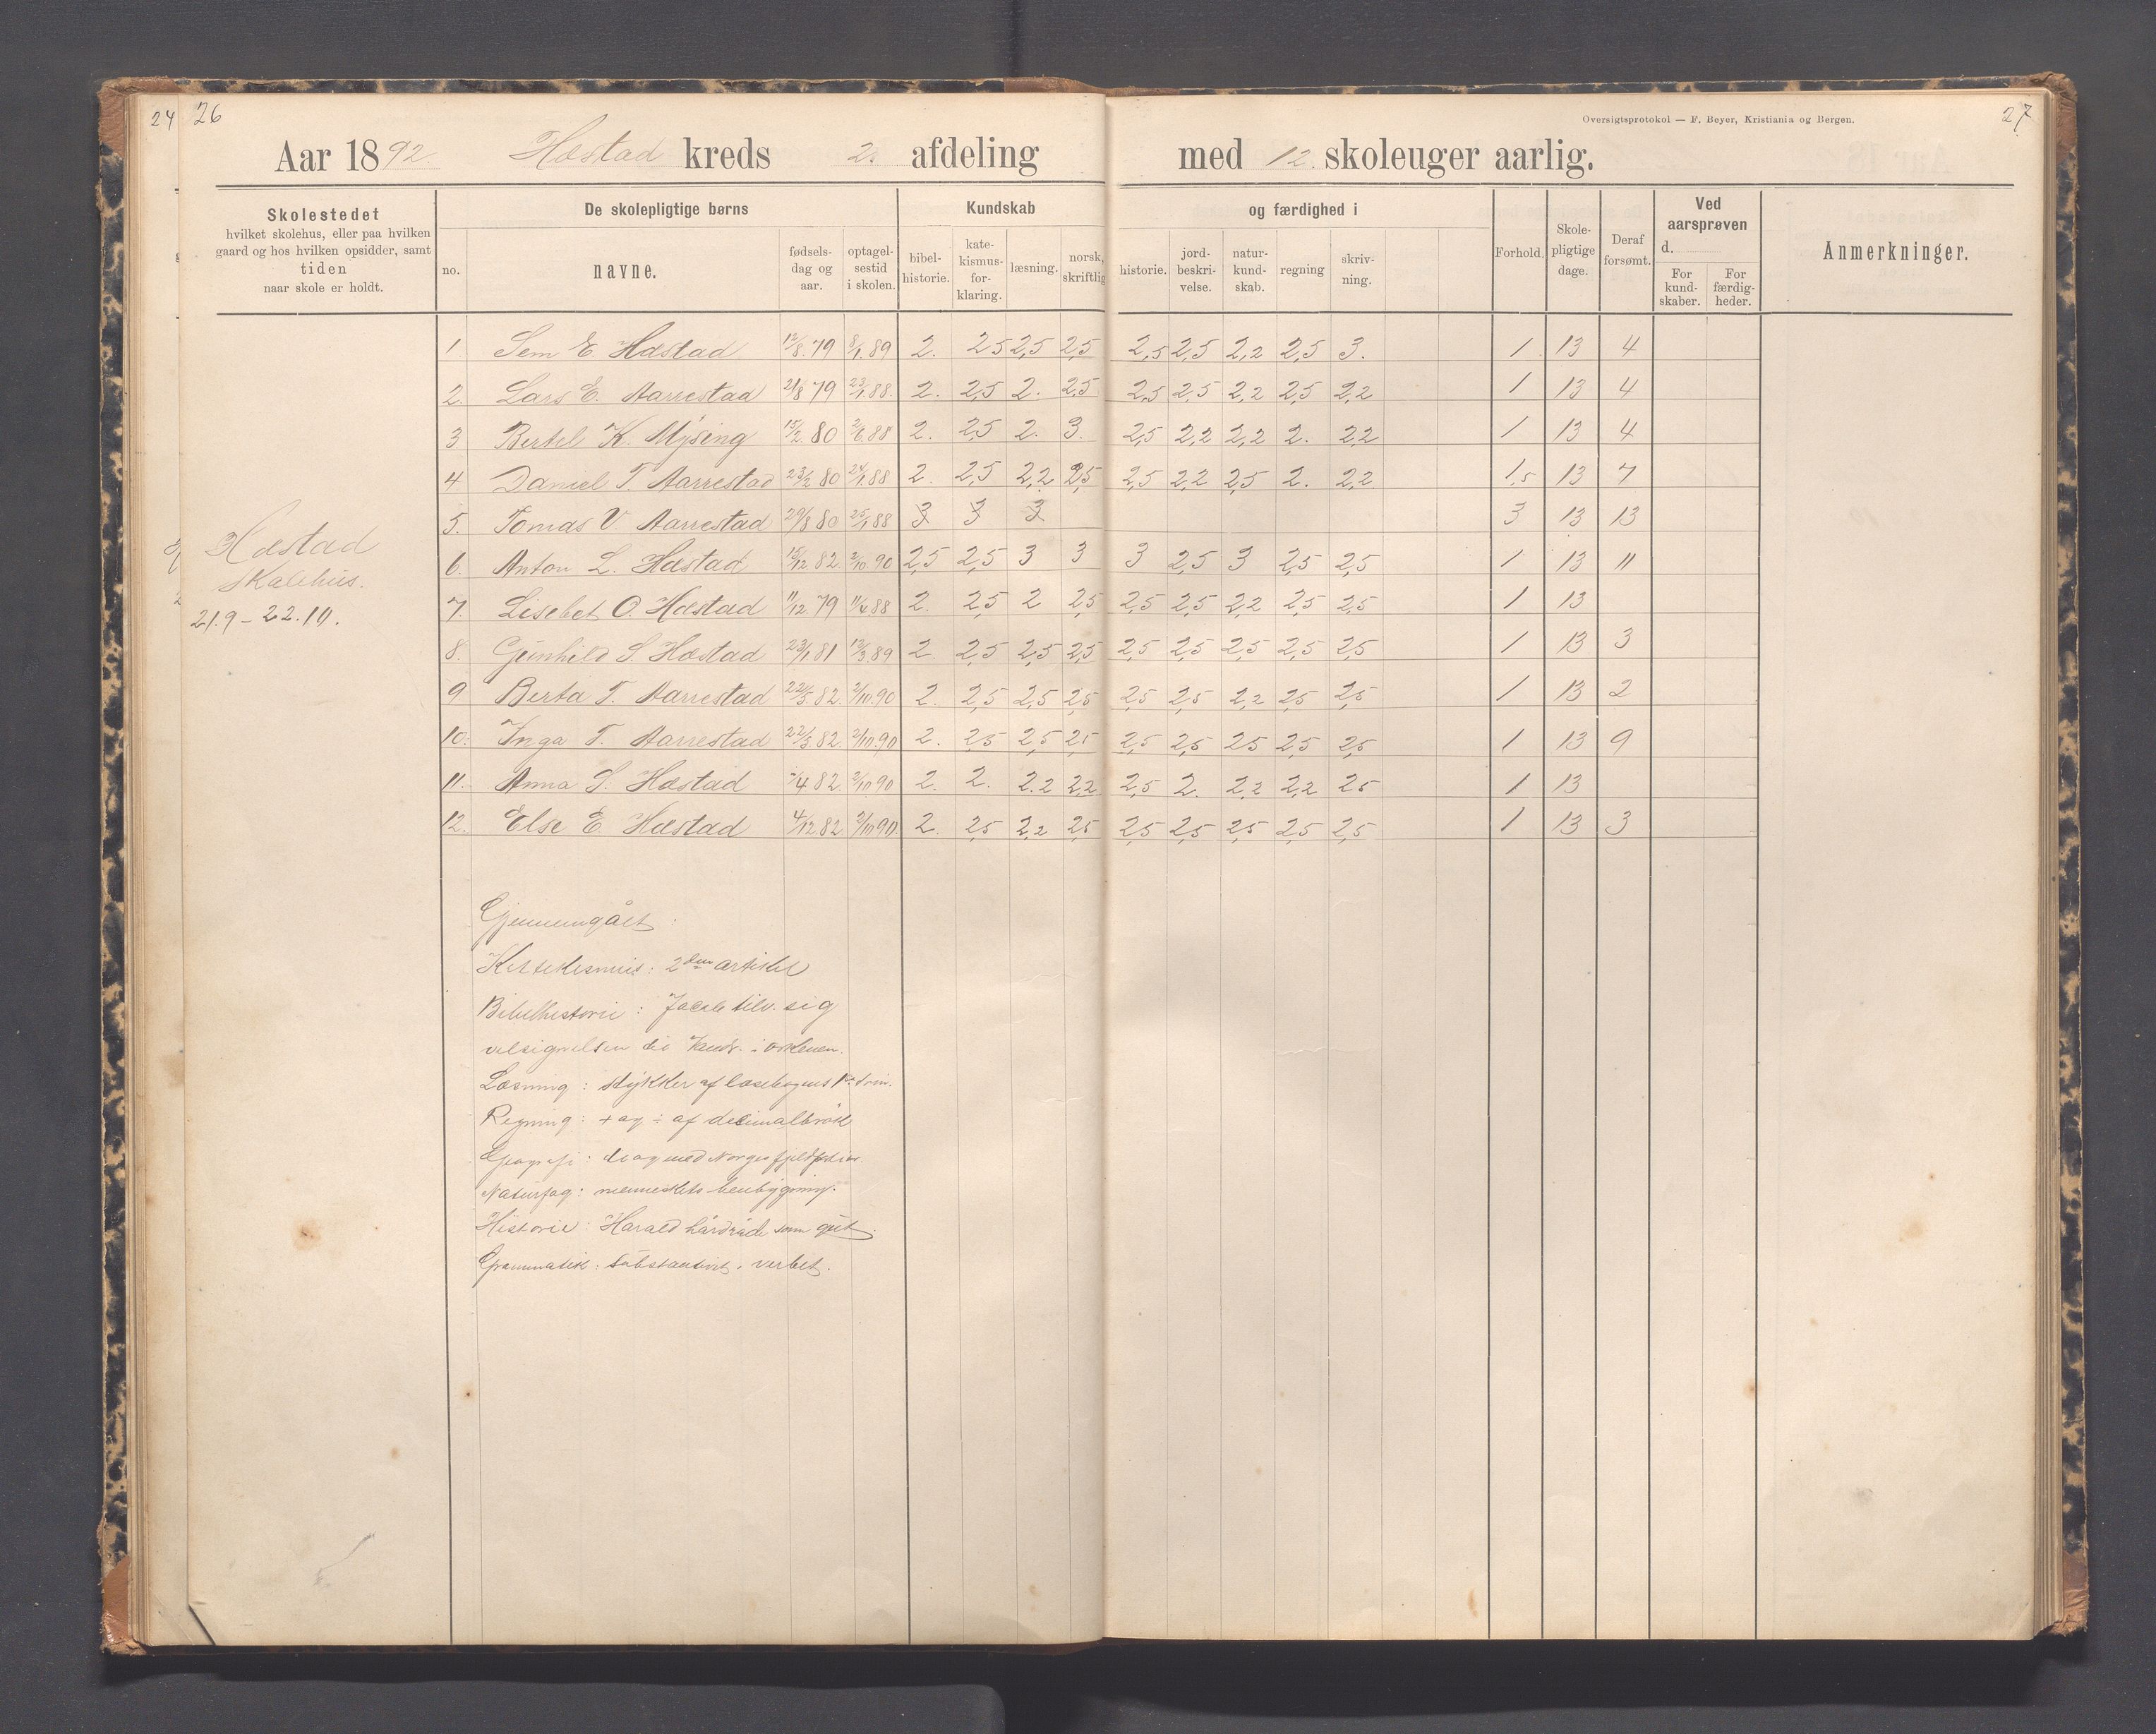 24 26
27
Oversigtsprotokol — F. Beyer, Kristiania og Bergen.
Aar 1892 Hæstad kreds 2. afdeling med 12 skoleuger aarlig.
Skolestedet
hvilket skolehus, eller paa hvilken
gaard og hos hvilken opsidder, samt
tiden
naar skole er holdt.
De skolepligtige børns
no.
navne.
fødsels-
dag og
aar.
optagel-
sestid
i skolen.
Kundskab
og færdighed i
bibel-
historie.
kate-
kismus-
for-
klaring.
læsning.
norsk,
skriftlig
historie.
jord-
beskri-
velse.
natur-
kund-
skab.
regning
skriv-
ning.
Forhold.
Skole-
pligtige
dage.
Deraf
forsømt.
Ved
aarsprøven
d.
For
kund-
skaber.
For
færdig-
heder.
Anmerkninger.
1. Sem E. Hæstad 12/8.79 8/1.89 2. 25 2,5 2,5 2,5 2,5 2,2 2,5 3. 1 13 4
2. Lars E. Aarrestad 21/8 79 23/1.88. 2. 2,5 2. 2,5 2,5 2,5 2,2 2,5 2,2 1 13 4
3 Bertel K. Mysing 15/2.80 2/6.88 2. 2,5 2. 3. 2,5 2,2 2,2 2. 2,2 1 13 4
4 Daniel T. Aarrestad 23/2 80 24/1.88 2. 2,5 2,2 2,5 2,5 2,2 2,5 2. 2,2 1,5 13 7
5. Tomas V. Aarrestad 29/8 80 25/1.88 3 3 3 3 13 13
6. Anton L. Hæstad 15/12 82. 2/10.90 2,5 2,5 3 3 3 2,5 3 2,5 2,5 1 13 11
7. Lisebet O. Hæstad 11/12 79 11/4.88 2. 2,5 2 2,5 2,5 2,5 2,2 2,5 2,5 1 13
8. Gunhild S. Hæstad 23/1 81 13/3.89 2. 2,5 2,5 2,5 2,5 2,5 2,5 2,5 2,5 1 13 3
9 Berta T. Aarrestad 22/3 82. 2/10.90 2. 2,5 2,5 2,5 2,5 2,5 2,2 2,5 2,5 1 13 2
10. Inga T. Aarrestad 22/3 82. 2/10.90 2. 2,5 2,5 2,5 2,5 2,5 2,5 2,5 2,5 1 13 9
11. Anna S. Hæstad /4 82. 2/10 90 2. 2. 2.2 2,2 2,5 2. 2,2 2,2 2,5 1 13
12. Else E. Hæstad 4/12 82 2/10 90. 2. 2,5 2,2 2,5 2,5 2,5 2,5 2,5 2,5 1 13 3
Hæstad
Skolehus.
21.9 – 22.10.
Gjennemgået:
Kattekismus: 2den artikel
Bibelhistorie: Jacob tilv. sig
velsignelsen til Vandr. i ørkenen.
Læsning: stykker af læsebogens 1ste trin.
Regning: + og ÷ af decimalbrøk
Geografi: til og med Norges
Naturfag: menneskets benbygning.
Historie: Harald hårdråde som gut.
Grammatik: Substantivet, verbet.